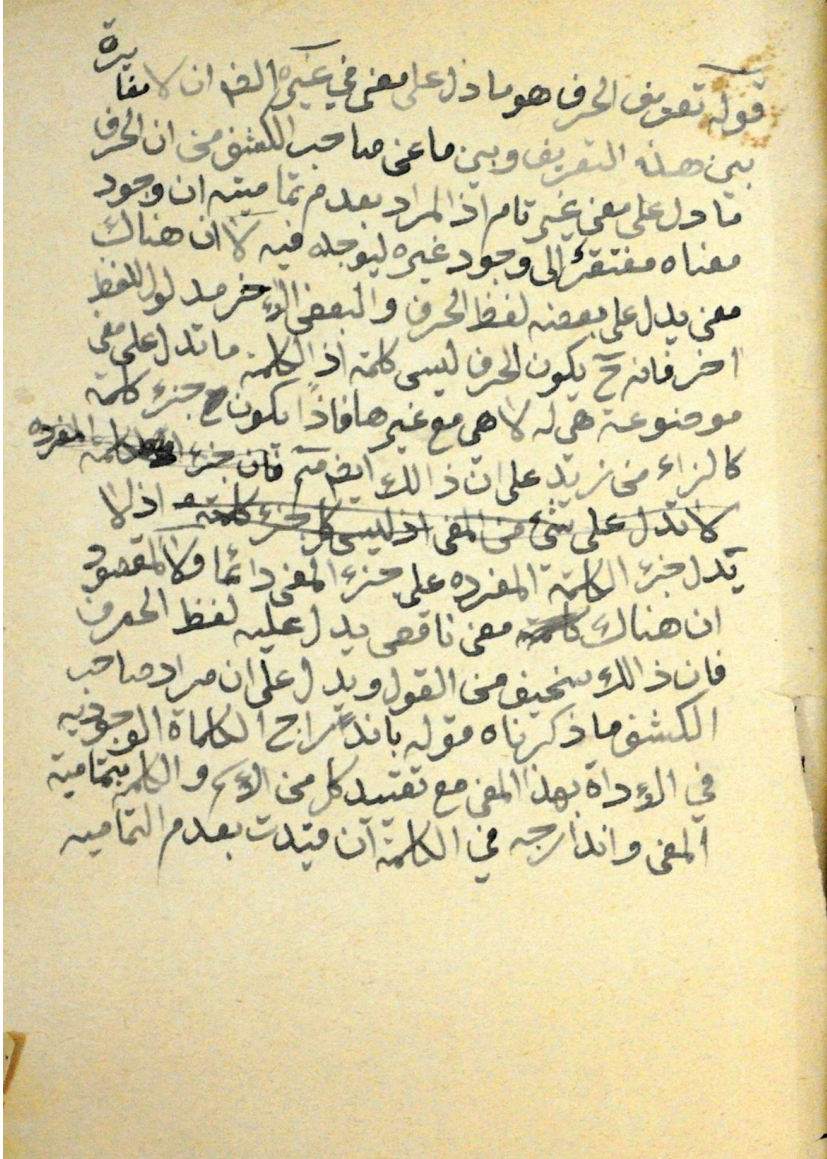 قوله تعريف الحرف هو ما دل على معنى في غيره الخ ان لا مغايرة
بين هذه التعريف وبين ما عنى صاحب الكشف من ان الحرف
ما دل على معنى غير تام اذ المراد بعدم تماميته ان وجود
معناه مفتقر إلى وجود غيره ليوجد فيه لا ان هناك
معنى يدل على بعضه لفظ الحرف والبعض الاخر مدلول اللفظ
اخر فانه ح يكون الحرف ليس كلمة اذ الكلمة ما تدل على معنى
موضوعة هي له لا هي مع غيرها فاذا يكون ح جزء كلمة
كالزاء من زيد على ان ذالك ايضا فان جزء الكلمة المفرده
لا تدل على شئ من المعنى اذ ليس كل جزء كلمة اذ لا
يدل جزء الكلمة المفرده على جزء المعنى دائما ولا المقصود
ان هناك كلمة معنى ناقص يدل عليه لفظ الحرف
فان ذالك سخيف من القول ويدل على ان مراد صاحب
الكشف ما ذكرناه قوله باندراج الكلماة الوجوديه
في الاداة بهذا المعنى مع تقييد كل من الاسم والكلمة بتمامية
المعنى واندارجه في الكلمة ان قيدت بعدم التماميه